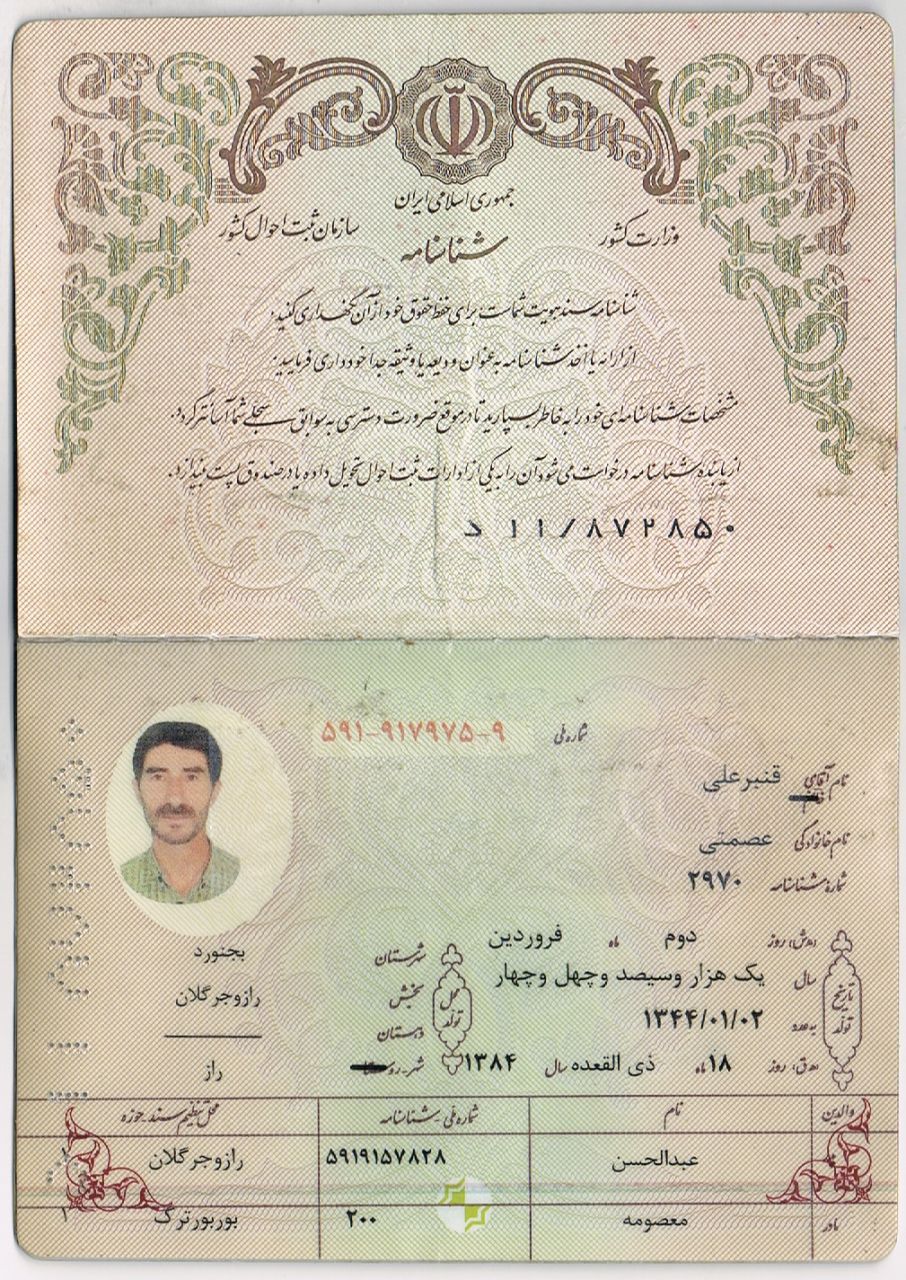 جمهوری اسلامی ایران
وزارت کشور
سازمان ثبت احوال کشور
شناسنامه
شناسنامه سند هویت شماست برای حفظ حقوق خود از آن نگهداری کنید.
از ارائه یا اخذ شناسنامه به عنوان ودیعه یا وثیقه جدا خودداری فرمایید.
مشخصات شناسنامه‌ای خود را به خاطر بسپارید تا در موقع ضرورت دسترسی به سوابق سجلی شما آسانتر گردد.
از یابنده شناسنامه درخواست می شود آن را به یکی از ادارات ثبت احوال تحویل داده یا در صندوق پست بیندازد.
د ۱۱/۸۷۲۸۵۰
شماره ملی ۵۹۱-۹۱۷۹۷۵-۹
نام آقای قنبرعلی
نام خانوادگی عصمتی
شماره شناسنامه ۲۹۷۰
تاریخ تولد
(ه‍.ش) روز دوم ماه فروردین
سال یک هزار وسیصد وچهل وچهار
به عدد ۱۳۴۴/۰۱/۰۲
(ه‍.ق) روز ۱۸ ماه ذی القعده سال ۱۳۸۴
محل تولد
شهرستان بجنورد
بخش رازوجرگلان
دهستان
شهر راز
والدین نام شماره ملی شناسنامه محل تنظیم سند حوزه
عبدالحسن ۵۹۱۹۱۵۷۸۲۸ رازوجرگلان
مادر معصومه ۲۰۰ بوربورترگ ۱